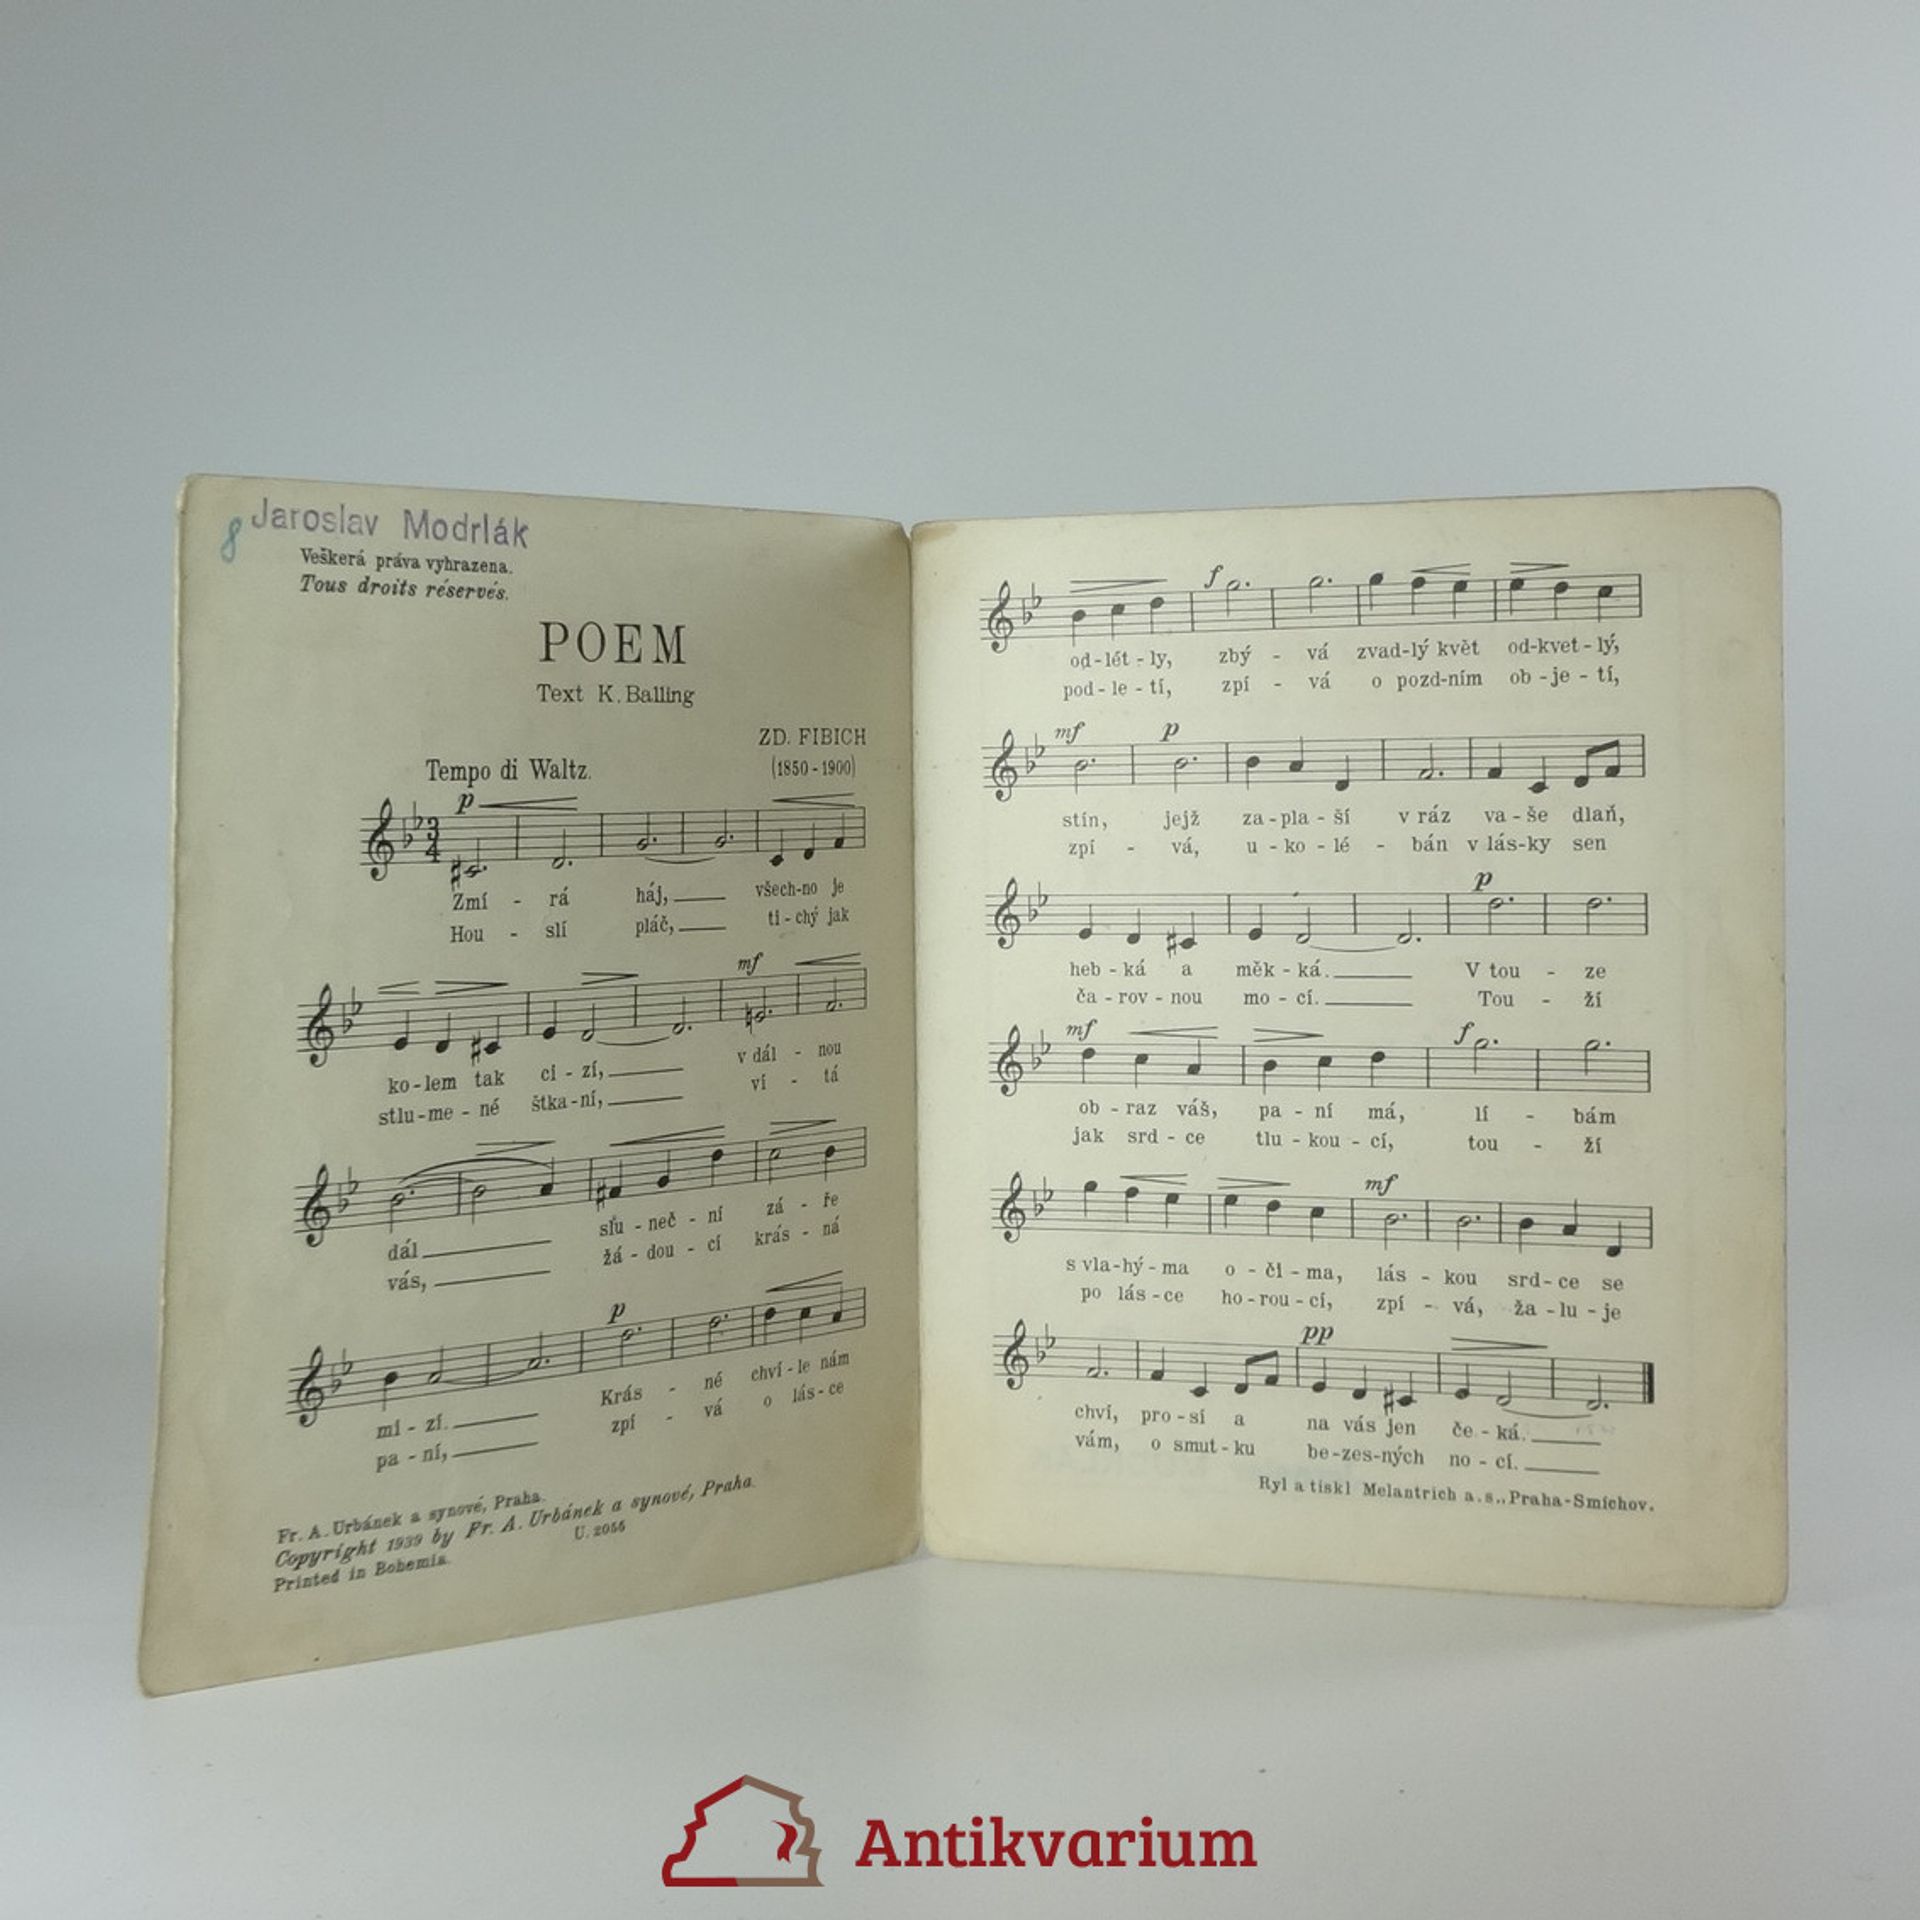 Jaroslav Modrlák
8
Veškerá práva vyhrazena.
Tous droits réservés.
POEM
Text K. Balling
ZD. FIBICH
(1850-1900)
Tempo di Waltz.
p
3
4
Zmí - rá háj, všech-no je
Hou - slí pláč, ti - chý jak
mf
ko-lem tak ci - zí, v dál - nou
stlu-me - né štka-ní, ví - tá
dál slu - neč - ní zá - ře
vás, žá - dou - cí krás - ná
p
mi - zí. Krás - né chví - le nám
pa - ní, zpí - vá o lás - ce
Fr. A. Urbánek a synové, Praha.
Copyright 1939 by Fr. A. Urbánek a synové, Praha.
Printed in Bohemia.
U. 2055
f
od-lét - ly, zbý - vá zvad-lý květ od-kvet - lý,
pod - le - tí, zpí - vá o pozd-ním ob - je - tí,
mf p
stín, jejž za - pla - ší v ráz va - še dlaň,
zpí - vá, u - ko - lé - bán v lás-ky sen
p
heb - ká a měk - ká. V tou - ze
ča - rov - nou mo - cí. Tou - ží
mf f
ob - raz váš, pa - ní má, lí - bám
jak srd - ce tlu - kou - cí, tou - ží
mf
s vla-hý - ma o - či - ma, lás - kou srd - ce se
po lás - ce ho - rou - cí, zpí - vá, ža - lu - je
pp
chví, pro - sí a na vás jen če - ká.
vám, o smut - ku be-zes-ných no - cí.
Ryl a tiskl Melantrich a. s., Praha-Smíchov.
Antikvarium